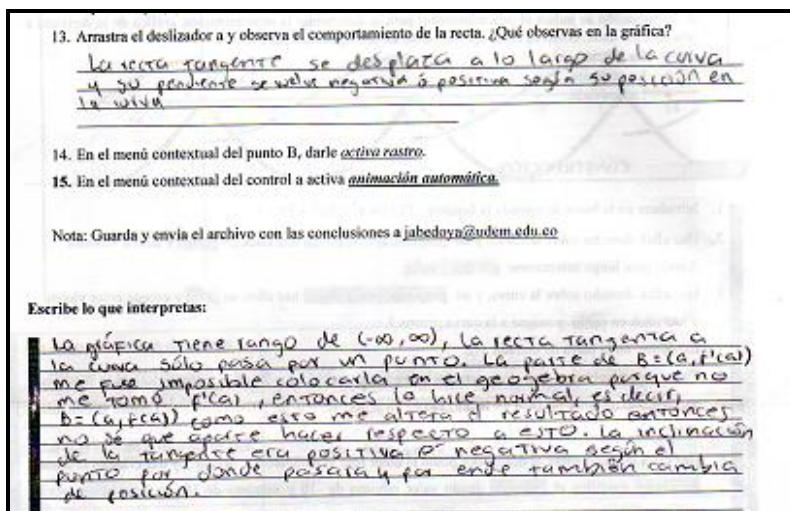 13. Arrastra el deslizador a y observa el comportamiento de la recta. ¿Qué observas en la gráfica?
La recta tangente se desplaza a lo largo de la curva
y su pendiente se velve negativa ó positiva según su posición en
la curva
14. En el menú contextual del punto B, darle activa rastro.
15. En el menú contextual del control a activa animación automática.
Nota: Guarda y envia el archivo con las conclusiones a jabedoya@udem.edu.co
Escribe lo que interpretas:
La gráfica tiene rango de (-∞, ∞), la recta tangente a
la curva sólo pasa por un punto. La parte de B=(a, f'(a))
me fue imposible colocarla en el geogebra porque no
me tomó f'(a), entonces lo hice normal, es decir,
B=(a, f(a)) como esto me altera el resultado entonces
no sé que hacer respecto a esto. La inclinación
de la tangente era positiva o negativa según el
punto por donde pasara y por ende también cambia
de posición.